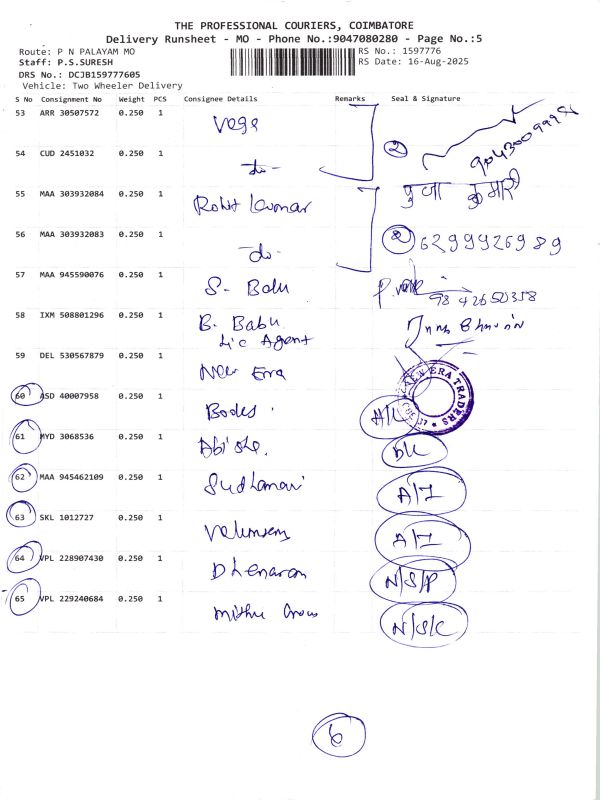 THE PROFESSIONAL COURIERS, COIMBATORE
Delivery Runsheet - MO - Phone No.:9047080280 - Page No.:5
Route: P N PALAYAM MO RS No.: 1597776
Staff: P.S.SURESH RS Date: 16-Aug-2025
DRS No.: DCJB159777605
Vehicle: Two Wheeler Delivery
S No Consignment No Weight PCS Consignee Details Remarks Seal & Signature
53 ARR 30507572 0.250 1 Vega
54 CUD 2451032 0.250 1 -do- 2
55 MAA 303932084 0.250 1 Rohit Kumar पुजा कुमारी
56 MAA 303932083 0.250 1 -do- 2 6299926989
57 MAA 945590076 0.250 1 S. Balu 9842650358
58 IXM 508801296 0.250 1 B. Babu
Lic Agent
59 DEL 530567879 0.250 1 New Era
ERA TRADERS
60 ASD 40007958 0.250 1 Bodes
61 MYD 3068536 0.250 1 D/L
62 MAA 945462109 0.250 1 A/I
63 SKL 1012727 0.250 1 A/I
64 VPL 228907430 0.250 1 N/S/P
65 VPL 229240684 0.250 1 Mithu N/S/C
6